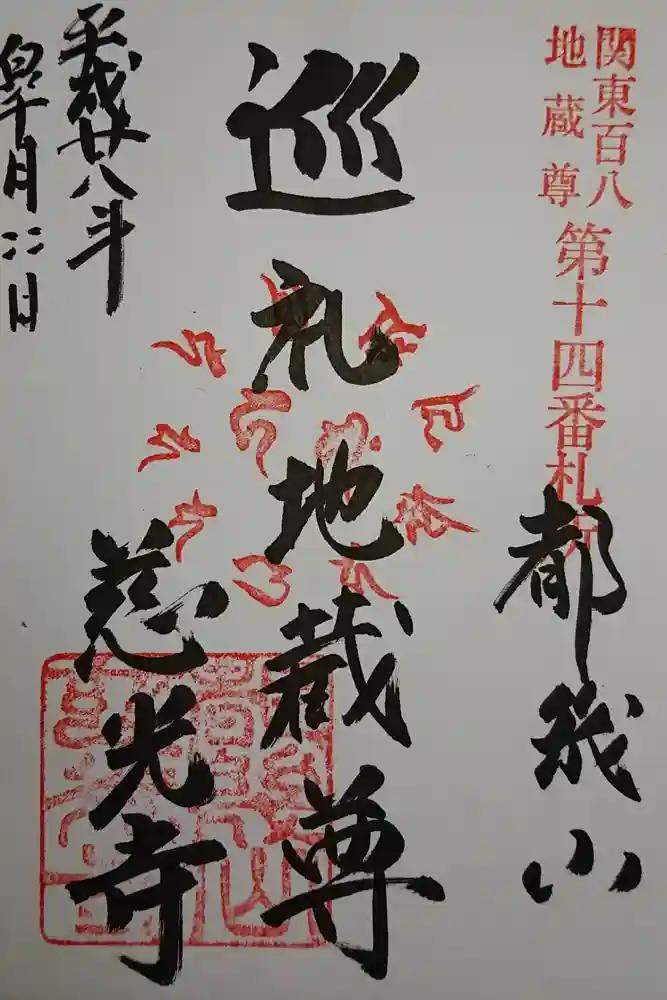 関東百八
地蔵尊
第十四番札所
都幾山
巡礼地蔵尊
慈光寺
平成廿八年
十月
日